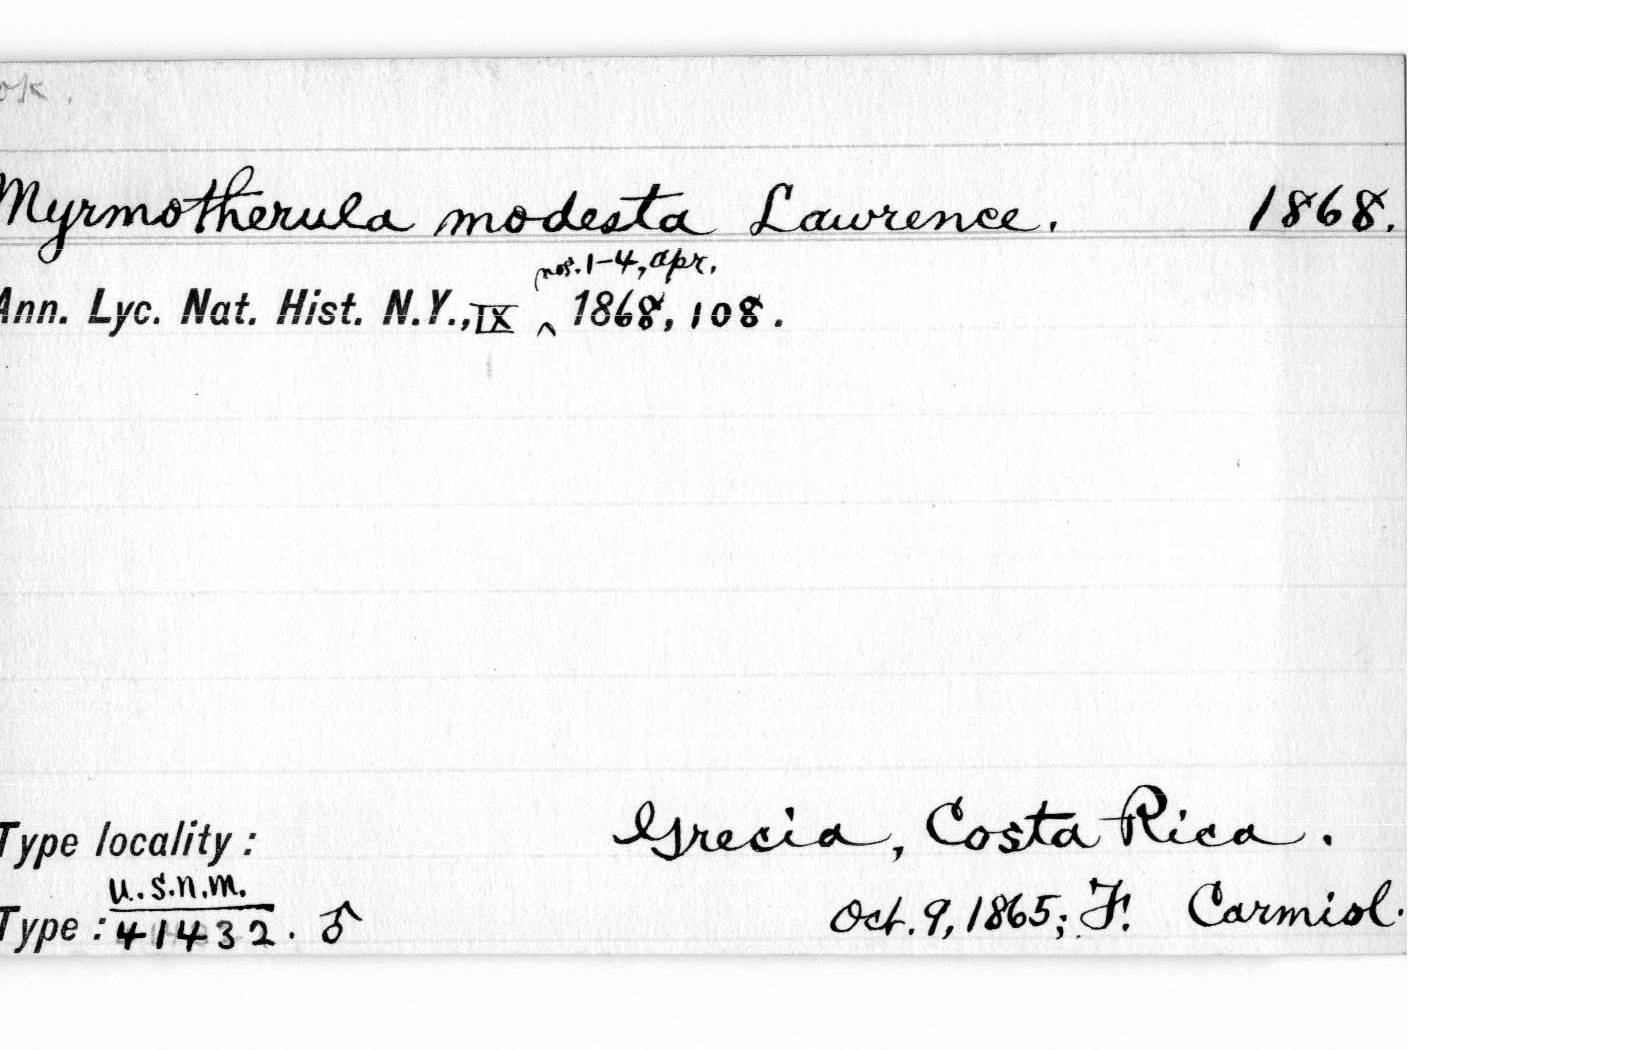 ok.
Myrmotherula modesta Lawrence. 1868.
nos. 1-4, Apr.
Ann. Lyc. Nat. Hist. N.Y., IX ^ 1868, 108.
Type locality: Grecia, Costa Rica.
U.S.N.M.
Type: 41432. ♂ Oct. 9, 1865; F. Carmiol.